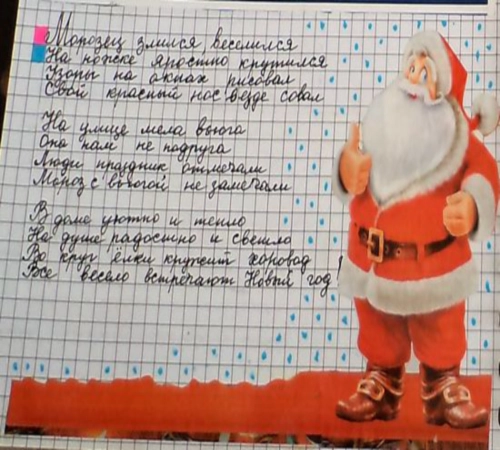 Морозец злился, веселился
На ножке яростно крутился
Узоры на окнах рисовал
Свой красный нос везде совал
На улице мела вьюга
Она нам не подруга
Люди праздник отмечали
Мороз с вьюгой не замечали
В доме уютно и тепло
На душе радостно и светло
Во круг ёлки кружит хоровод
Все весело встречают Новый год!